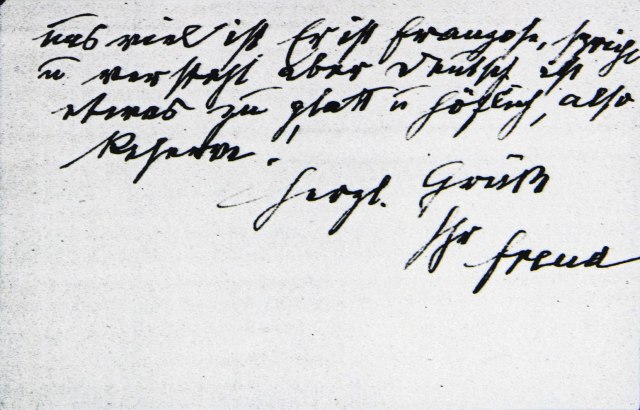 was viel ist Er ist Franzose, spricht
u versteht aber Deutsch ist
etwas zu glatt u höflich, also
Reserve!
Herzl. Gruß
Ihr Freud